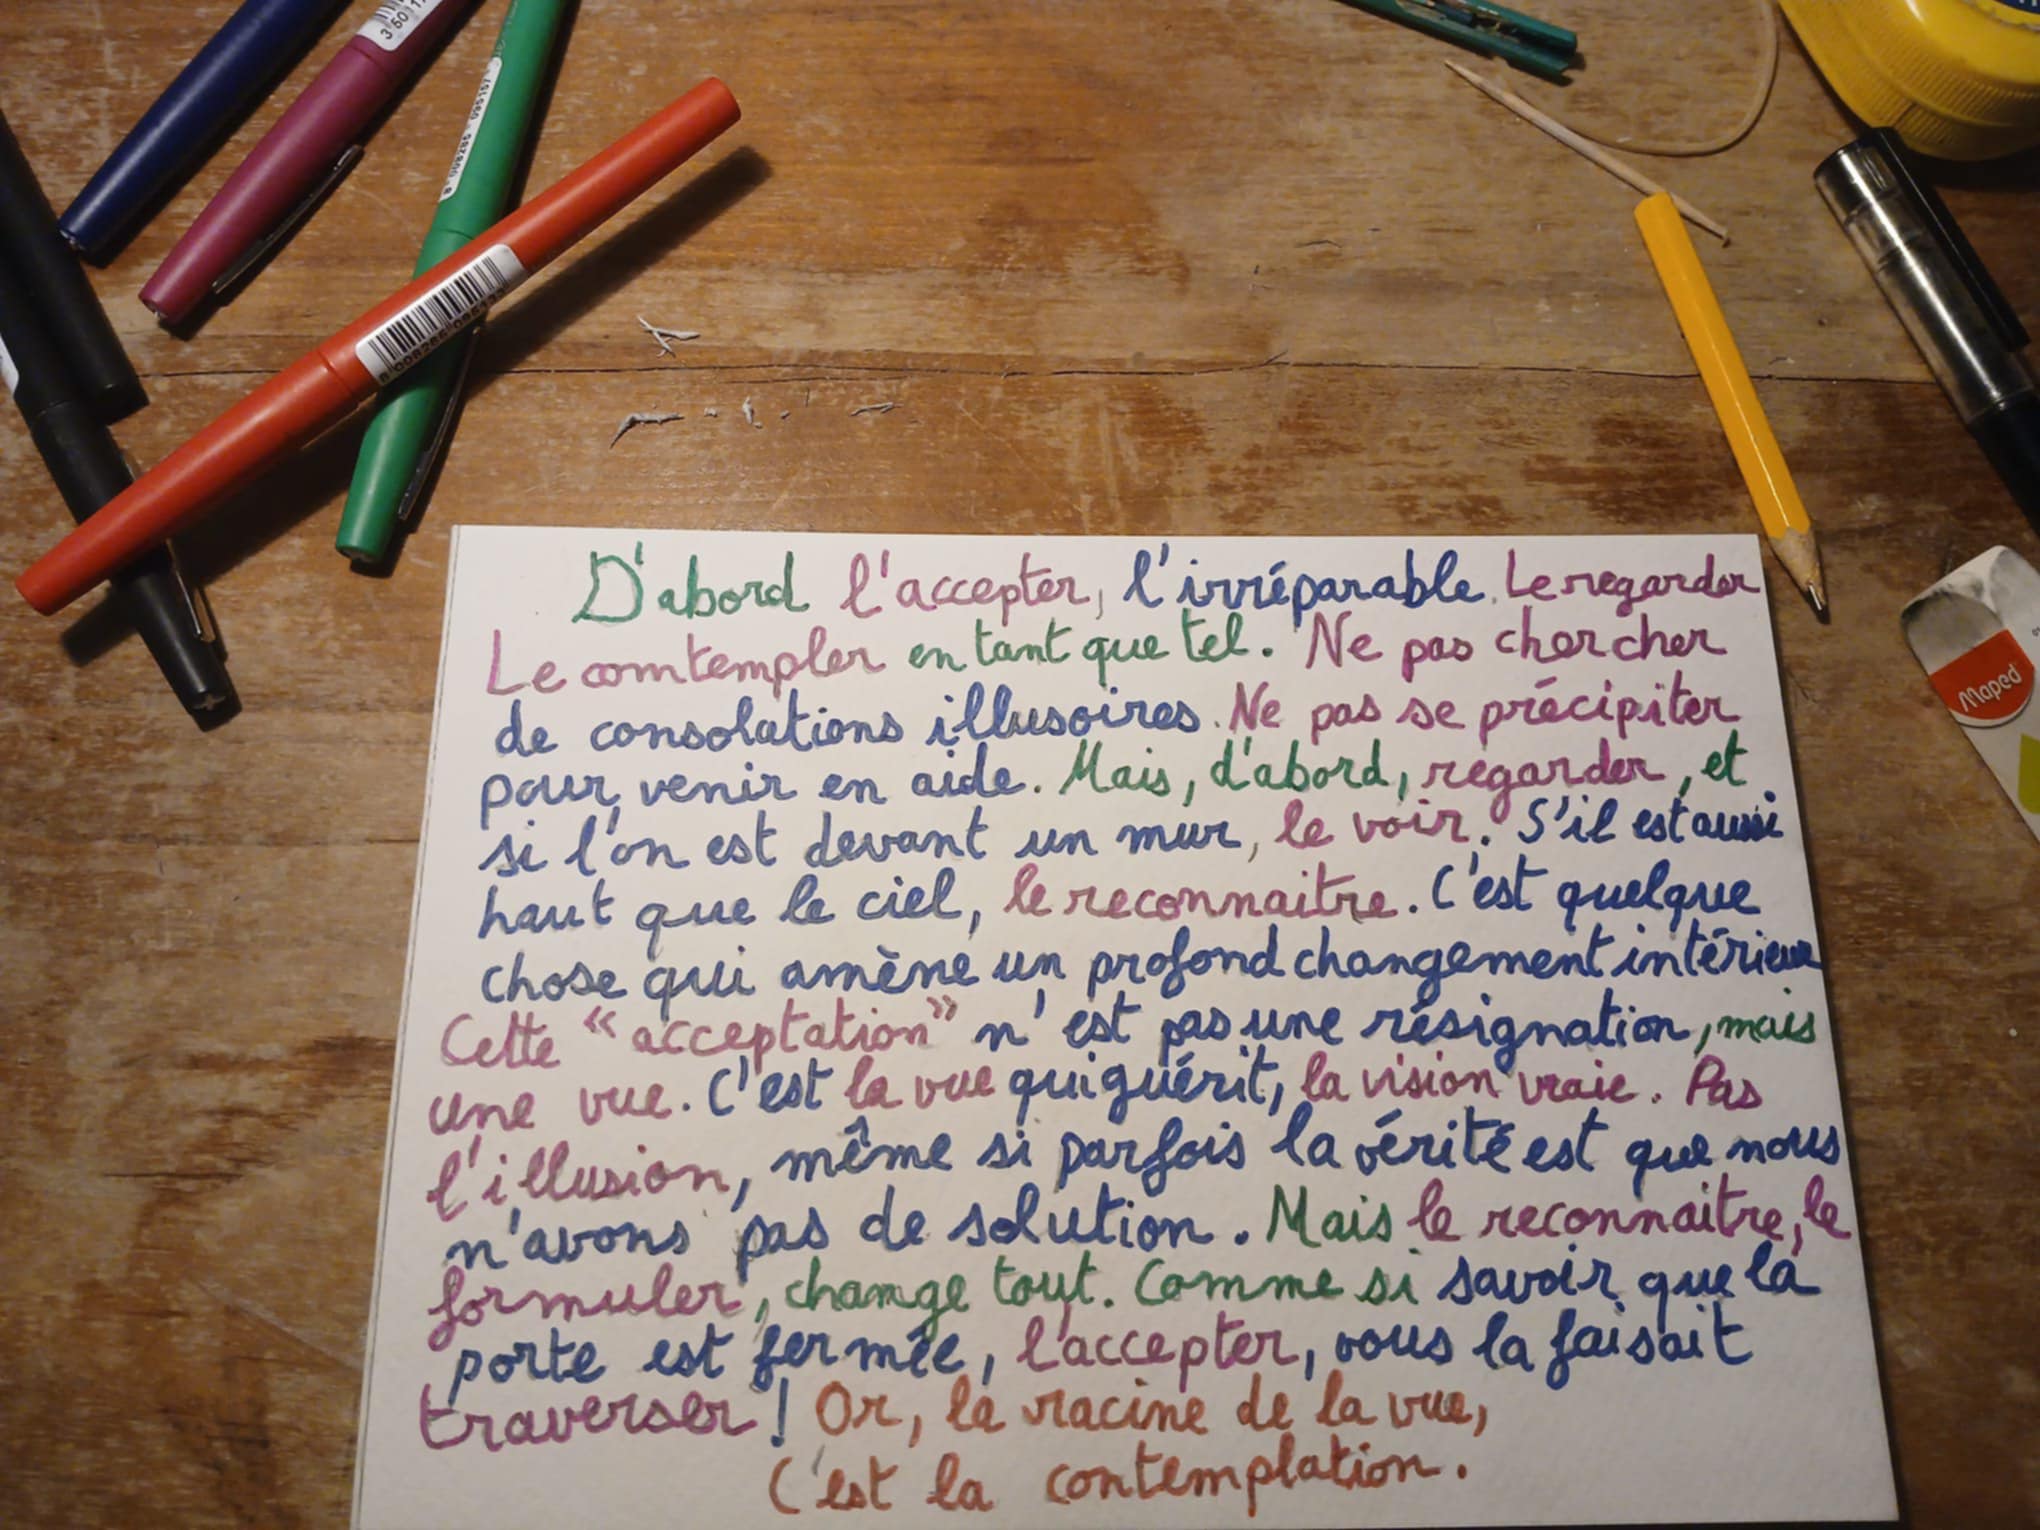 3 50
8 008285 095157
8 008285 095133
Maped
D'abord l'accepter, l'irréparable. Le regarder
Le contempler en tant que tel. Ne pas chercher
de consolations illusoires. Ne pas se précipiter
pour venir en aide. Mais, d'abord, regarder, et
si l'on est devant un mur, le voir. S'il est aussi
haut que le ciel, le reconnaitre. C'est quelque
chose qui amène un profond changement intérieur
Cette "acceptation" n'est pas une résignation, mais
une vue. C'est la vue qui guérit, la vision vraie. Pas
l'illusion, même si parfois la vérité est que nous
n'avons pas de solution. Mais le reconnaitre, le
formuler, change tout. Comme si savoir que la
porte est fermée, l'accepter, vous la faisait
traverser ! Or, la racine de la vue,
C'est la contemplation.